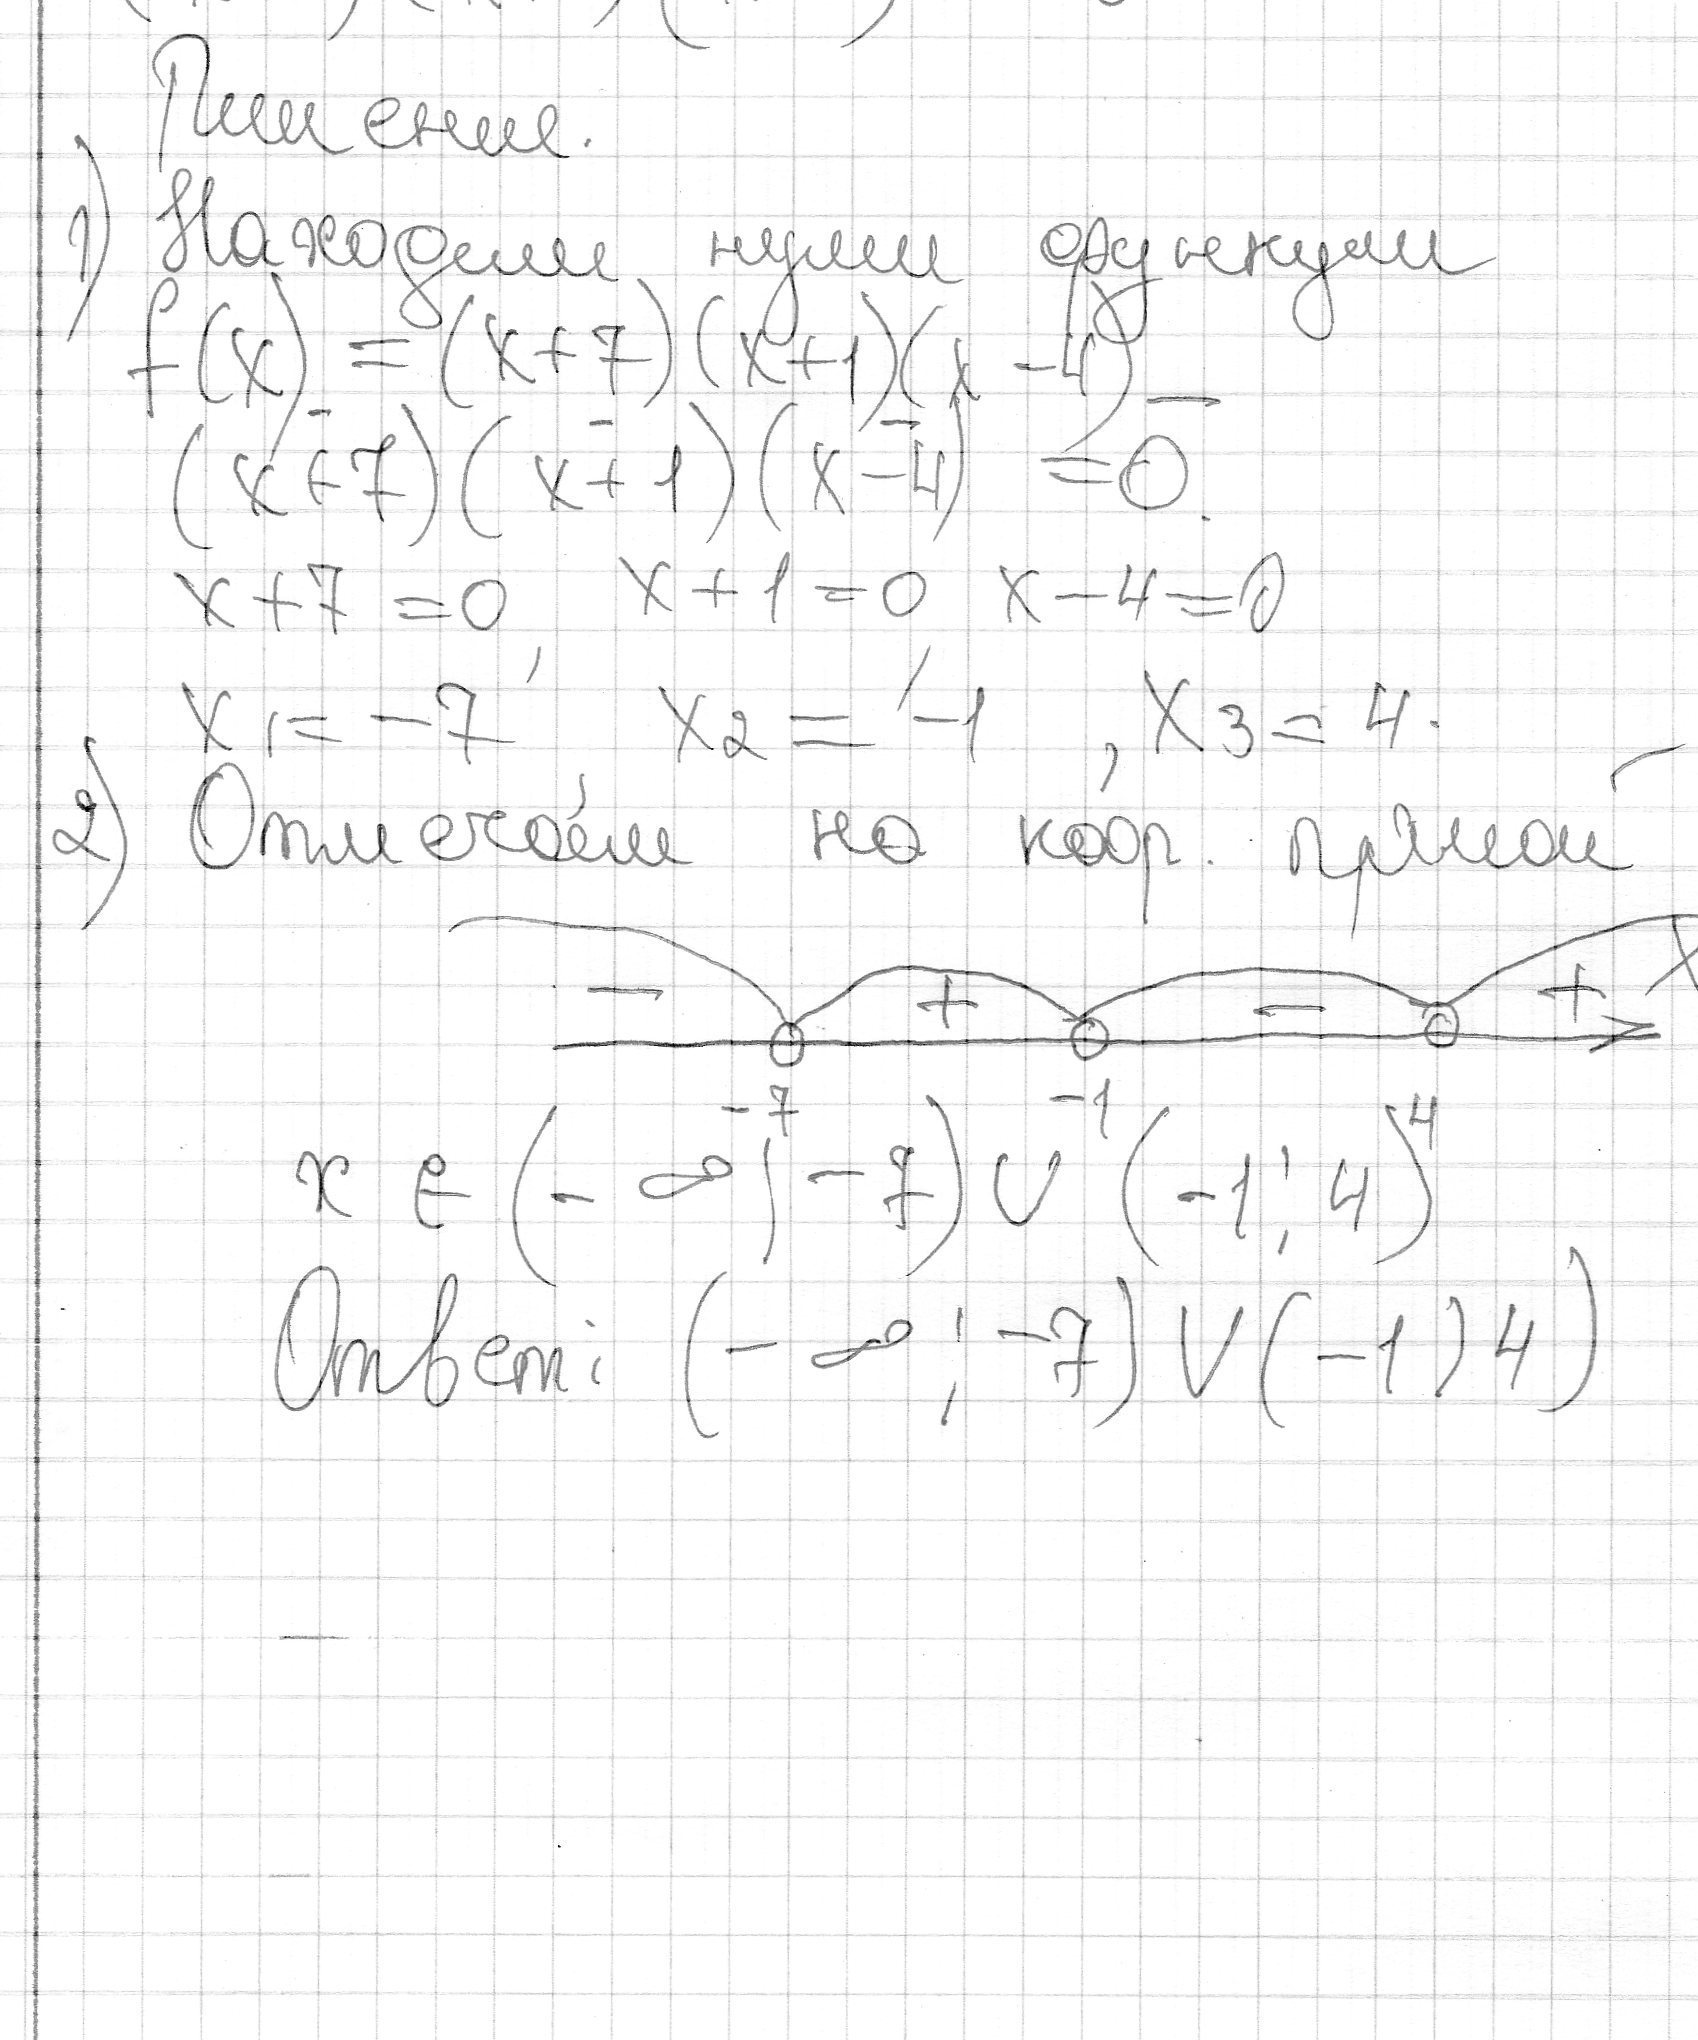 Решение.
1) Находим нули функции
f(x) = (x+7)(x+1)(x-4)
(x+7)(x+1)(x-4) = 0.
x+7=0, x+1=0, x-4=0
x1 = -7, x2 = -1, x3 = 4.
2) Отмечаем на коор. прямой
- + - + X
-7 -1 4
x ∈ (-∞; -7) ∪ (-1; 4)
Ответ: (-∞; -7) ∪ (-1; 4)